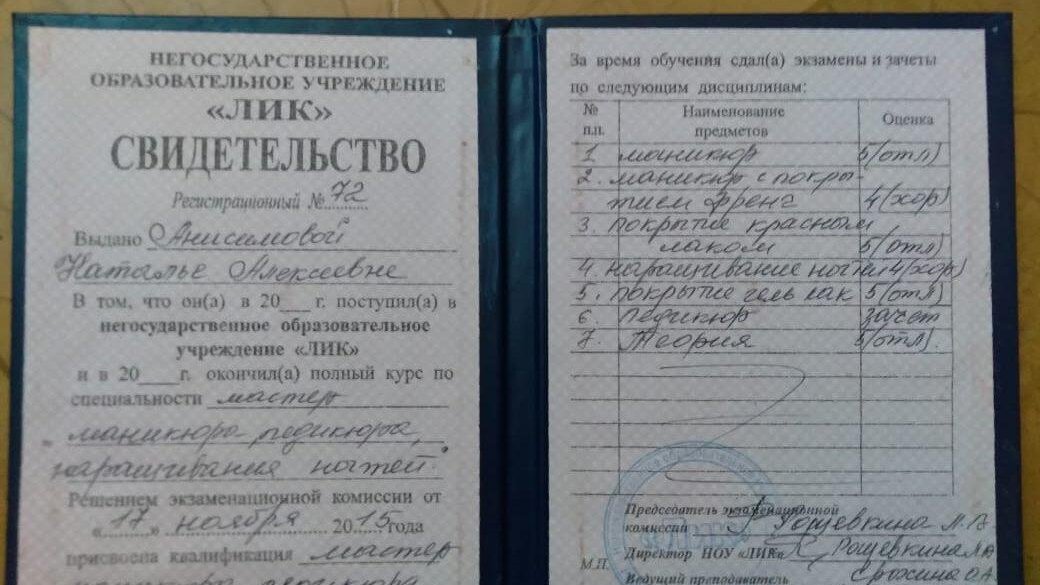 НЕГОСУДАРСТВЕННОЕ
ОБРАЗОВАТЕЛЬНОЕ УЧРЕЖДЕНИЕ
«ЛИК»
СВИДЕТЕЛЬСТВО
Регистрационный № 72
Выдано Анисимовой
Наталье Алексеевне
В том, что он(а) в 20___ г. поступил(а) в
негосударственное образовательное
учреждение «ЛИК»
и в 20___ г. окончил(а) полный курс по
специальности мастер
маникюра, педикюра,
наращивания ногтей"
Решением экзаменационной комиссии от
«17» ноября 2015 года
присвоена квалификация мастер
маникюра педикюра
За время обучения сдал(а) экзамены и зачеты
по следующим дисциплинам:
№ п.п. Наименование предметов Оценка
1. маникюр 5(отл)
2. маникюр с покры-
тием френг 4(хор)
3. покрытие красным
лаком 5(отл)
4. наращивание ногтей 4(хор)
5. покрытие гель лак 5(отл)
6. педикюр зачет
7. Теория 5(отл).
Председатель экзаменационной
комиссии Рощевкина М.А.
М.П. Директор НОУ «ЛИК» Рощевкина М.А
Ведущий преподаватель Ерохина О.А